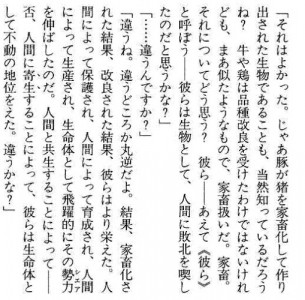 「それはよかった。じゃあ豚が猪を家畜化して作り
出された生物であることも、当然知っているだろう
ね？　牛や鶏は品種改良を受けたわけではないけれ
ども、まあ似たようなもので、家畜扱いだ。家畜。
それについてどう思う？　彼ら――あえて《彼ら》
と呼ぼう――彼らは生物として、人間に敗北を喫し
たのだと思うかな？」
「……違うんですか？」
「違うね。違うどころか丸逆だよ。結果、家畜化さ
れた結果、改良された結果、彼らはより栄えた。人
間によって保護され、人間によって育成され、人間
によって生産され、生命体として飛躍的にその勢力
シェア
を伸ばしたのだ。人間と共生することによって――
否、人間に寄生することによって、彼らは生命体と
して不動の地位をえた。違うかな？」